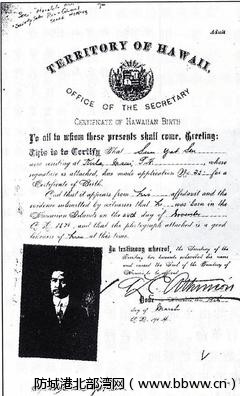 TERRITORY OF HAWAII,
OFFICE OF THE SECRETARY
CERTIFICATE OF HAWAIIAN BIRTH
To all to whom these presents shall come, Greeting:
This is to Certify That Sun Yat Sen
now residing at Kula, Maui, T.H., whose
signature is attached, has made application No. for a
Certificate of Birth.
And that it appears from his affidavit and the
evidence submitted by witnesses that he was born in the
Hawaiian Islands on the day of November
A. D. 1870, and that the photograph attached is a good
likeness of him at this time.
In testimony whereof, the Secretary of the
Territory has hereunto subscribed his
name and caused the Seal of the Territory of
Hawaii to be affixed.
Atkinson
day of March
A. D. 1904
防城港北部湾网（www.bbww.cn）